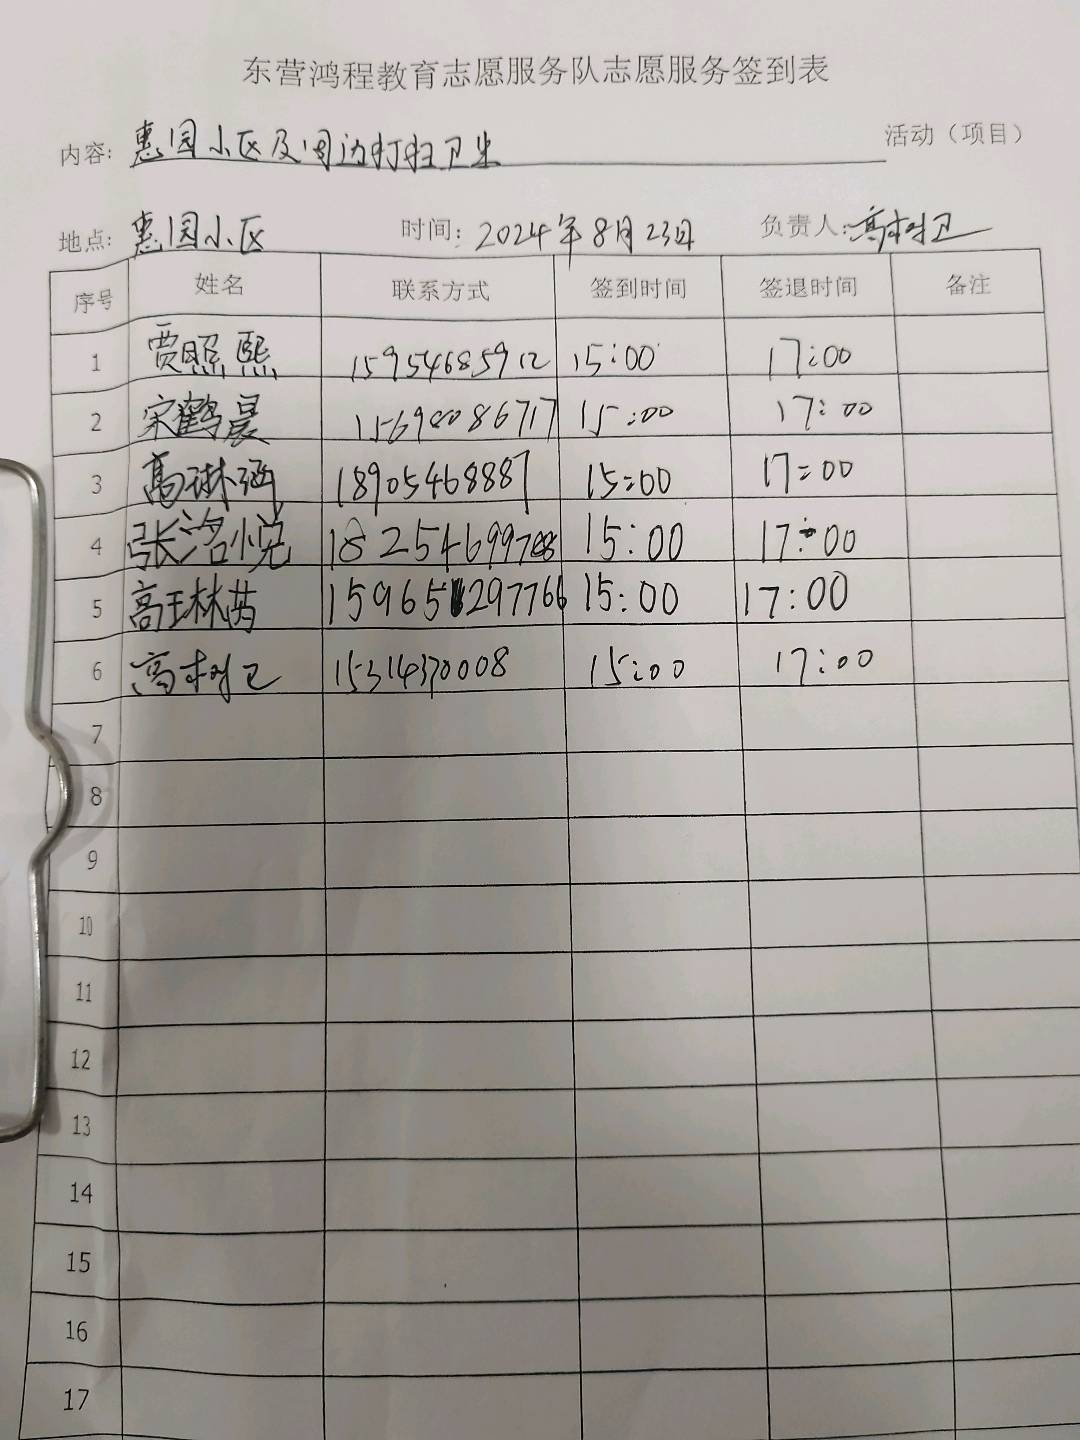 东营鸿程教育志愿服务队志愿服务签到表
内容: 惠园小区及周边打扫卫生 活动（项目）
地点: 惠园小区 时间: 2024年8月23日 负责人: 高树卫
序号 姓名 联系方式 签到时间 签退时间 备注
1 贾照熙 15954685912 15:00 17:00
2 宋鹤晨 15698086717 15:00 17:00
3 高琳涵 18905468887 15:00 17:00
4 张洺悦 18254699788 15:00 17:00
5 高琳芮 15965297766 15:00 17:00
6 高树卫 15314370008 15:00 17:00
7
8
9
10
11
12
13
14
15
16
17